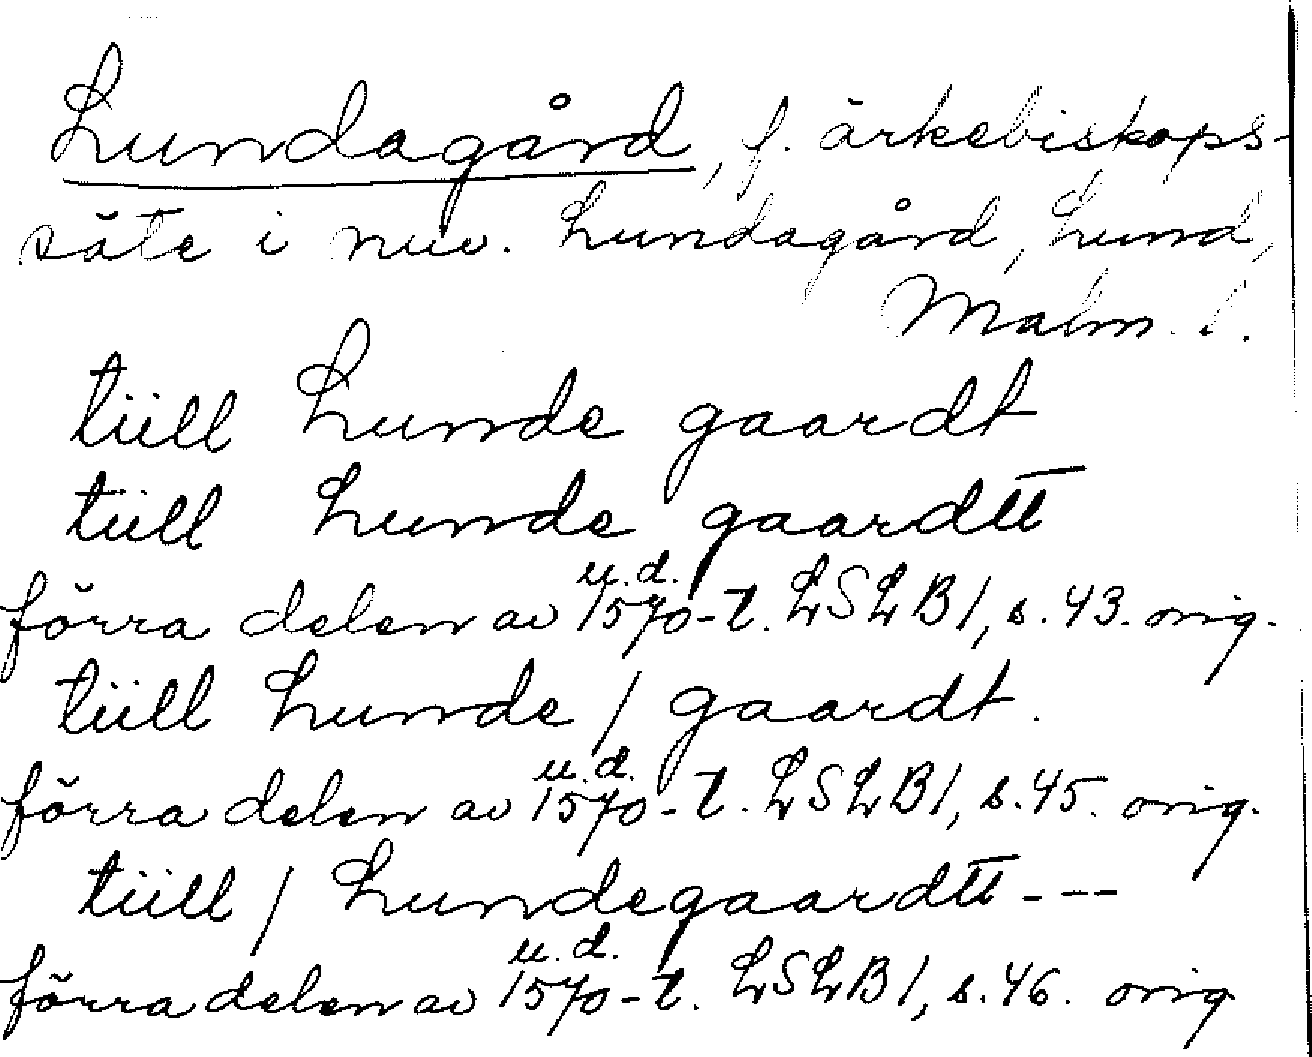 Lundagård, f. ärkebiskops-
säte i nuv. Lundagård, Lund,
Malm. l.
tiill Lunde gaardt
tiill Lunde gaardtt
förra delen av u.d. 1570-t. LSLB1, s. 43. orig.
tiill Lunde / gaardt.
förra delen av u.d. 1570-t. LSLB1, s. 45. orig.
tiill / Lundegaardtt---
förra delen av u.d. 1570-t. LSLB1, s. 46. orig